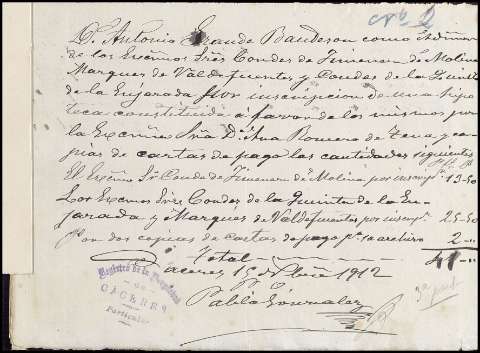 Nº 2
Dn. Antonio Grande Baudeson como
de los Excmos Sres Condes de Jimenez de Molina
Marques de Valdefuentes y Condes de la Quinta
de la Enjarada por inscripcion de una hipo
teca constituida á favor de los mismos por
la Excma Sña Dª Ana Romero de Tena, y co
pias de cartas de pago las cantidades siguientes
El Excmo Sr Conde de Jimenez de Molina por 13-50
Los Excmos Sres Condes de la Quinta de la En
jarada y Marques de Valdefuentes por 25-50
Por dos copias de cartas de pago 2 "
Total 41
Caceres 15 1912
Pablo Gonzalez
Registro de la Propiedad
de
CACERES
Particular